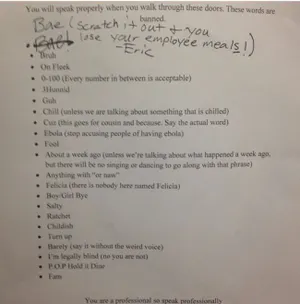 You will speak properly when you walk through these doors. These words are banned.
Bae (scratch it out & you
lose your employee meals!)
-Eric
• Bruh
• On Fleek
• 0-100 (Every number in between is acceptable)
• 3Hunnid
• Guh
• Chill (unless we are talking about something that is chilled)
• Cuz (this goes for cousin and because. Say the actual word)
• Ebola (stop accusing people of having ebola)
• Fool
• About a week ago (unless we're talking about what happened a week ago,
but there will be no singing or dancing to go along with that phrase)
• Anything with "or naw"
• Felicia (there is nobody here named Felicia)
• Boy/Girl Bye
• Salty
• Ratchet
• Childish
• Turn up
• Barely (say it without the weird voice)
• I'm legally blind (no you are not)
• P.O.P Hold it Down
• Fam
You are a professional so speak professionally